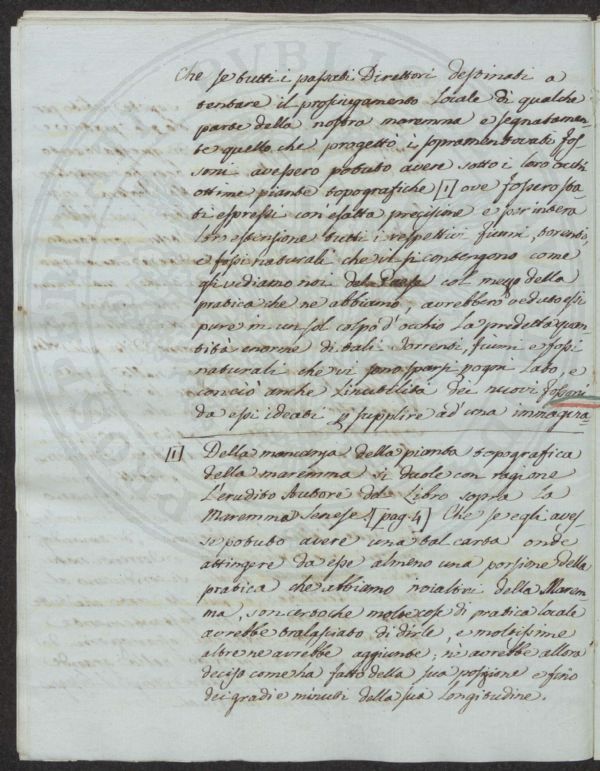 Che se tutti i passati Direttori destinati a
tentare il prosciugamento locale di qualche
parte della nostra maremma e segnatamen-
te quello che progettò i sopramentovati fos-
soni avessero potuto avere sotto i loro occhi
ottime piante topografiche [1] ove fossero sta-
ti espressi con esatta precisione e per intera
lor estensione tutti i respettivi fiumi, torrenti,
e fossi naturali che vi si contengono come
gli vediamo noi col mezzo della
pratica che ne abbiamo, avrebbero veduto essi
pure in un sol colpo d'occhio la predetta quan-
tità enorme di tali torrenti, fiumi e fossi
naturali che vi sono sparsi p ogni lato, e
con ciò anche l'inutilità dei nuovi fossoni
da essi ideati p supplire ad una immagina-
[1] Della mancanza della pianta topografica
della maremma si duole con ragione
l'erudito Autore del Libro sopra la
Maremma Senese [pag. 4] Che se egli aves-
se potuto avere una tal carta onde
attingere da esse almeno una porsione della
pratica che abbiamo noi altri della Marem-
ma, son certo che molte cose di pratica locale
avrebbe tralasciato di dirle, e moltissime
altre ne avrebbe aggiunte; nè avrebbe allora
deciso come ha fatto della sua posizione e fino
dei gradi e minuti della sua longitudine.
PVBLIC
PROSPERITATI